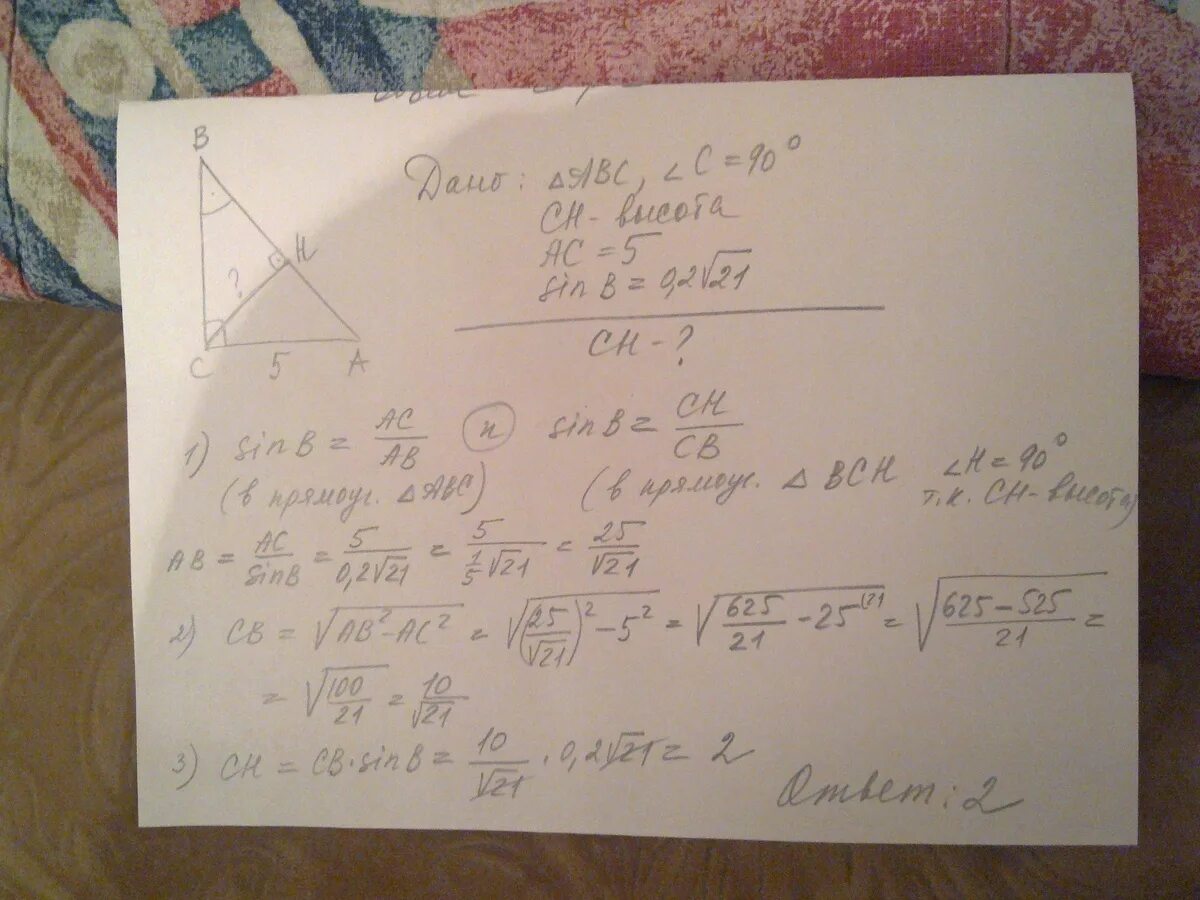 B
H
?
C
5
A
Дано: △ABC, ∠C = 90°
CH - высота
AC = 5
sin B = 0,2√21
CH - ?
1) sin B = AC/AB (и) sin B = CH/CB
(в прямоуг. △ABC) (в прямоуг. △ BCH ∠H = 90° т.к. CH - высота)
AB = AC/sinB = 5/0,2√21 = 5/(1/5 √21) = 25/√21
2) CB = √(AB² - AC²) = √((25/√21)² - 5²) = √(625/21 - 25^(21) = √((625 - 525)/21) =
= √(100/21) = 10/√21
3) CH = CB · sin B = 10/√21 · 0,2√21 = 2
Ответ: 2